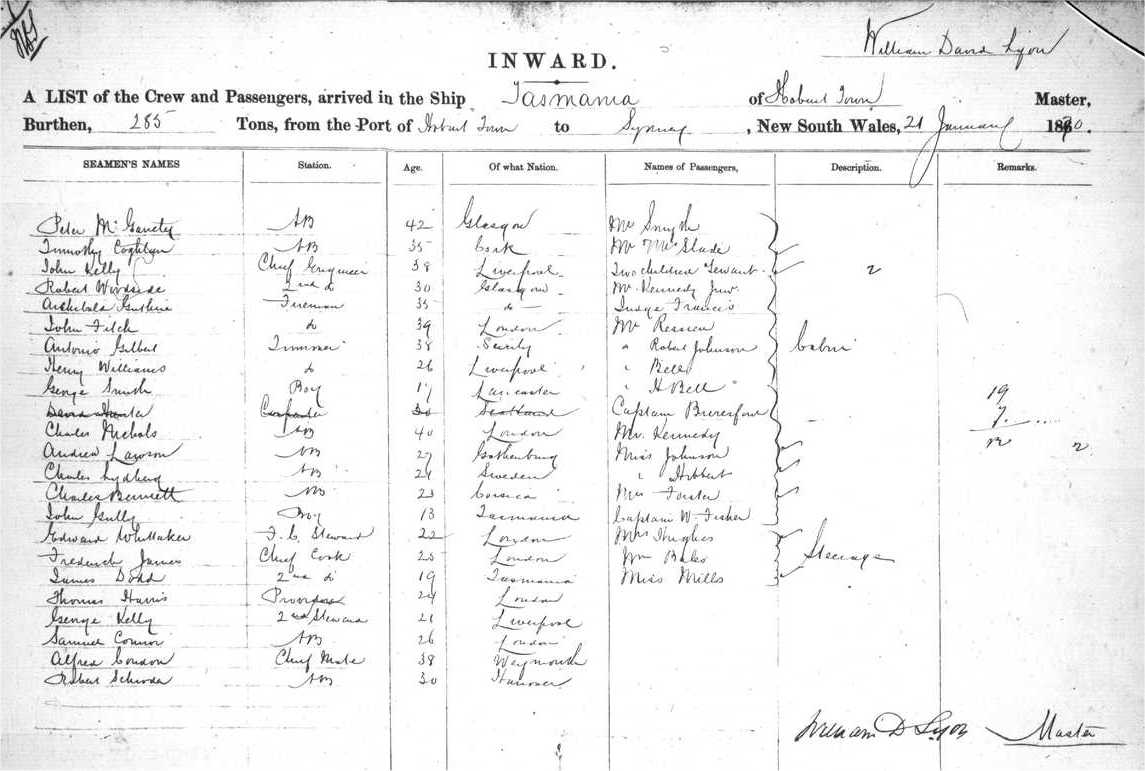 William David Lyon
INWARD.
A LIST of the Crew and Passengers, arrived in the Ship Tasmania of Hobart Town Master,
Burthen, 285 Tons, from the Port of Hobart Town to Sydney, New South Wales, 21 January 1870.
SEAMEN'S NAMES Station. Age. Of what Nation. Names of Passengers, Description. Remarks.
Peter McGanety AB 42 Glasgow Mr Smyth
Timmothy Coghlan AB 35 Cork Mr Slade
John Kelly Chief Engineer 38 Liverpool Two children Servant 2
Robert Woodside 2nd do 30 Glasgow Mr Kennedy Junr.
Archibald Guthrie Fireman 35 do Judge Francis
John Fitch do 39 London Mr
Antonio Gilbert Trimmer 38 Sicily " Robert Johnson Cabin
Henry Williams do 26 Liverpool " Bell
George Smith Boy 17 Lancaster " H Bell 19
David Carpenter Scotland Captain Beresford 7
Charles Nichols AB 40 London Mr. Kennedy 2
Andrew Lawson AB 27 Gothenburg Miss Johnson
Charles Lydberg AB 24 Sweden " Hibbert
Charles Bennett AB 23 Corsica Mrs Forster
John Gully Boy 13 Tasmania Captain W. Fisher
Edward Whittaker F. C. Steward 22 London Mrs Hughes
Frederick James Chief Cook 25 London Wm Bales Steerage
James Dodd 2nd do 19 Tasmania Miss Mills
Thomas Harris 24 London
George Kelly 2nd Steward 21 Liverpool
Samuel Connor AB 26 London
Alfred Condon Chief Mate 38 Weymouth
Robert Schroder AB 30 Hanover
William D Lyon Master